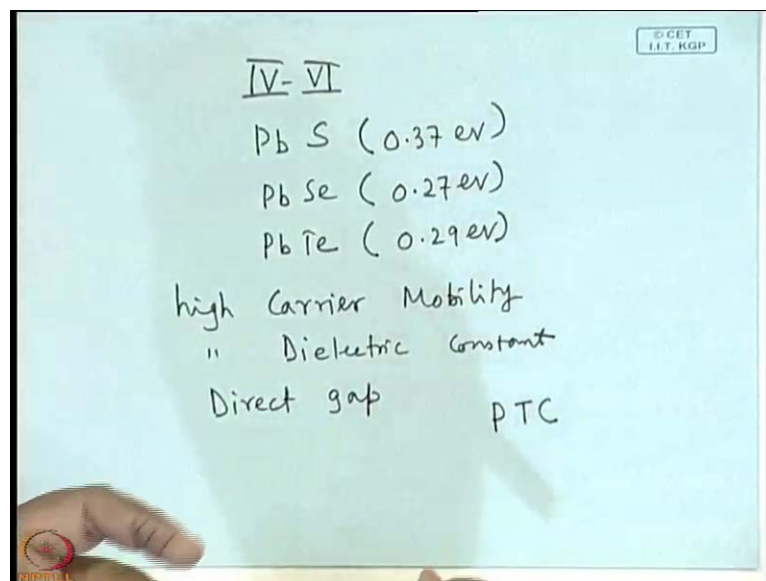 © CET
I.I.T. KGP
IV - VI
Pb S ( 0.37 ev )
Pb Se ( 0.27 ev )
Pb Te ( 0.29 ev )
high Carrier Mobility
" Dielectric Constant
Direct gap
PTC
NPTEL